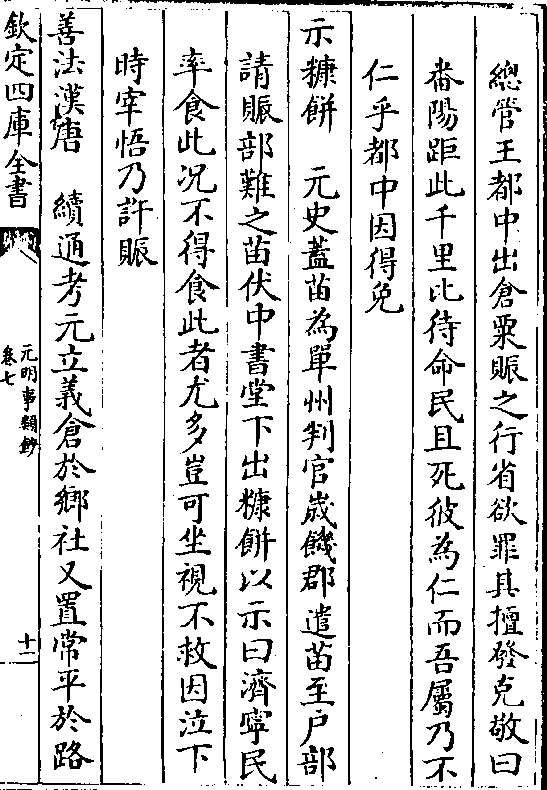 總管王都中出倉粟賑之行省欲罪其擅發克敬曰
番陽距此千里比待命民且死彼為仁而吾屬乃不
仁乎都中因得免
示糠餅　元史蓋苗為單州判官歲饑郡遣苗至戶部
請賑部難之苗伏中書堂下出糠餅以示曰濟寧民
率食此况不得食此者尤多豈可坐視不救因泣下
時宰悟乃許賑
善法漢唐　續通考元立義倉於鄉社又置常平於路
欽定四庫全書
元明事類鈔
卷七
十一